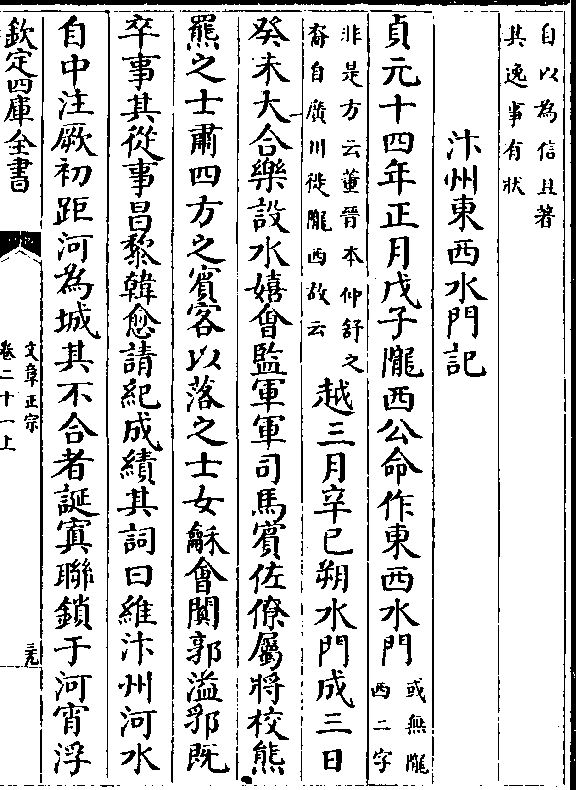 自以為信且著
其逸事有狀
汴州東西水門記
貞元十四年正月戊子隴西公命作東西水門
或無隴
西二字
非是方云董晉本仲舒之
裔自廣川徙隴西故云
越三月辛巳朔水門成三日
癸未大合樂設水嬉會監軍軍司馬賓佐僚屬將校熊
羆之士肅四方之賓客以落之士女龢會闐郭溢郛既
卒事其從事昌黎韓愈請紀成績其詞曰維汴州河水
自中注厥初距河為城其不合者誕寘聯鎖于河宵浮
欽定四庫全書
文章正宗
卷二十一上